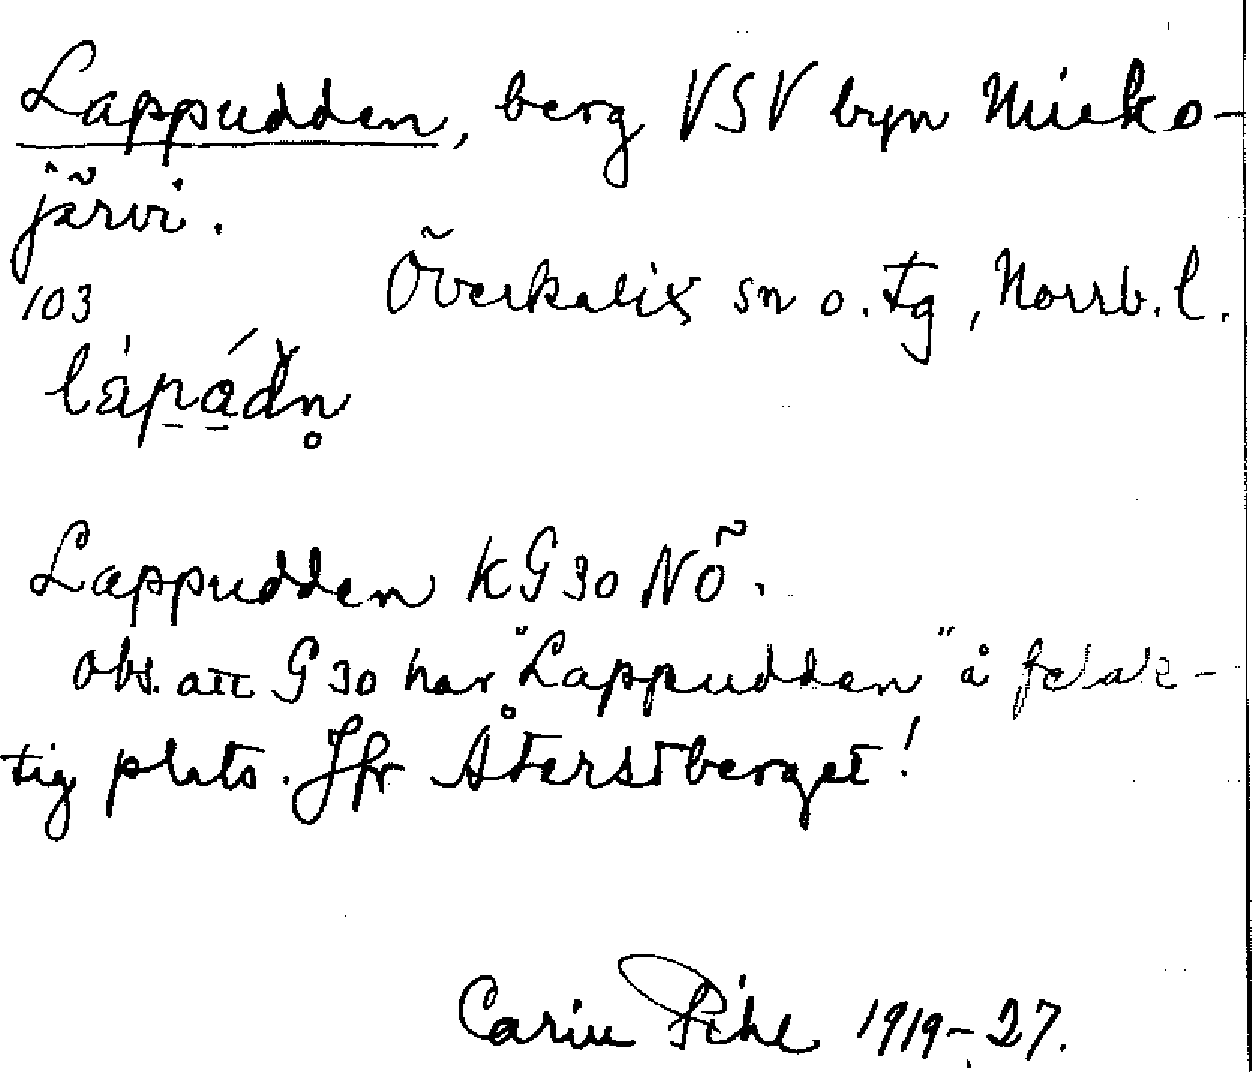 Lappudden, berg VSV byn Mieko-
järvi.
Överkalix sn o. tg, Norrb. l.
103
Lappudden KG30 NÖ.
Obs. att G30 har "Lappudden" å felak-
tig plats. Jfr Återstberget!
Carin Pihl 1919-27.